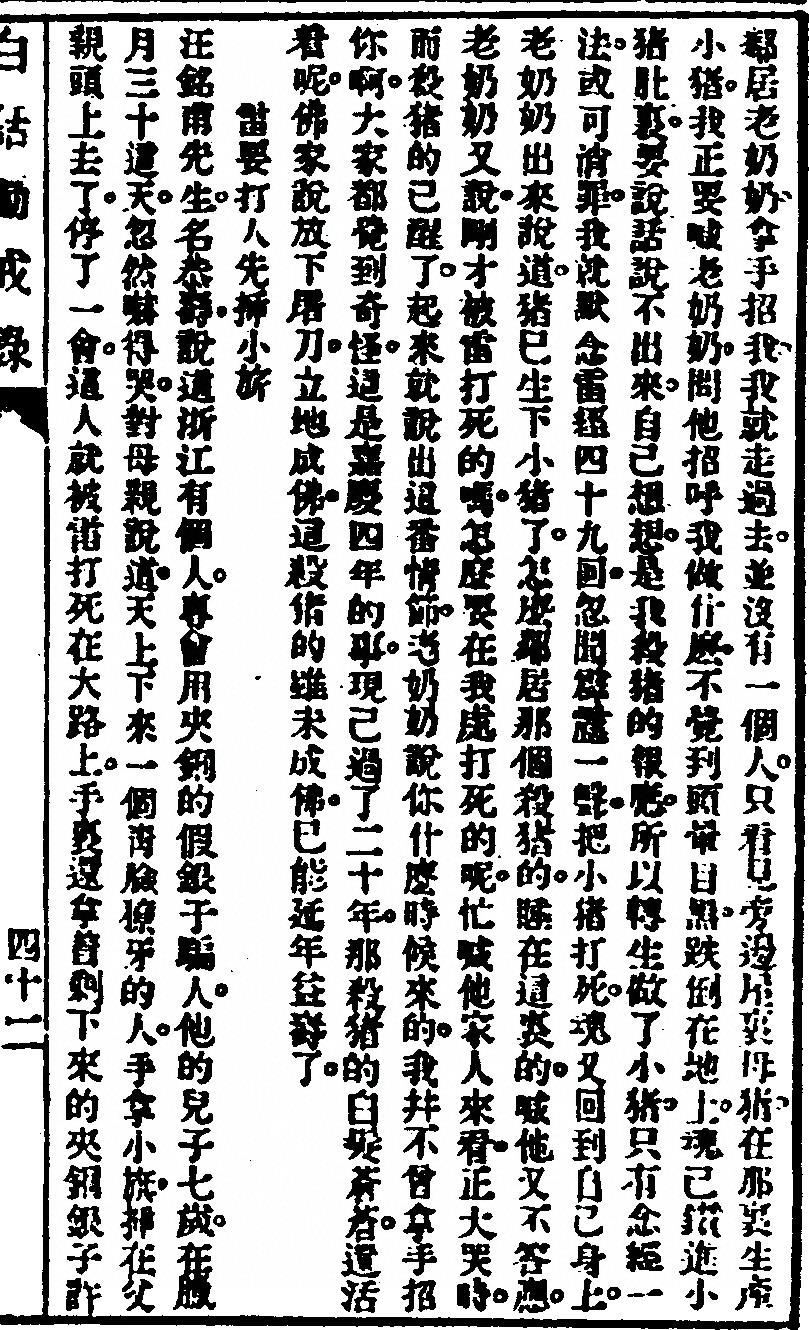 鄰居老奶奶拿手招我我就走過去並沒有一個人只看見旁邊屋裏母猪在那裏生產
小猪我正要喊老奶奶問他招呼我做什麽不覺到頭暈目黑跌倒在地上魂已鑽進小
猪肚裏要說話說不出來自己想想是我殺猪的報應所以轉生做了小猪只有念經一
法或可消罪我就默念雷經四十九回忽聞霹靂一聲把小猪打死魂又回到自己身上
老奶奶出來說道猪已生下小猪了怎麽鄰居那個殺猪的睡在這裏的喊他又不答應
老奶奶又說剛才被雷打死的嗎怎麽要在我處打死的呢忙喊他家人來看正大哭時
而殺猪的已醒了起來就說出這番情節老奶奶說你什麽時候來的我並不曾拿手招
你啊大家都覺到奇怪這是嘉慶四年的事現已過了二十年那殺猪的白髮蒼蒼還活
着呢佛家說放下屠刀立地成佛這殺猪的雖未成佛已能延年益壽了
雷要打人先插小旂
汪銘甫先生名恭壽說道浙江有個人專會用夾銅的假銀子騙人他的兒子七歲在臘
月三十這天忽然嚇得哭對母親說道天上下來一個靑臉獠牙的人手拿小旂插在父
親頭上去了停了一會這人就被雷打死在大路上手裏還拿着剩下來的夾銅銀子許
白話勸戒錄
四十二